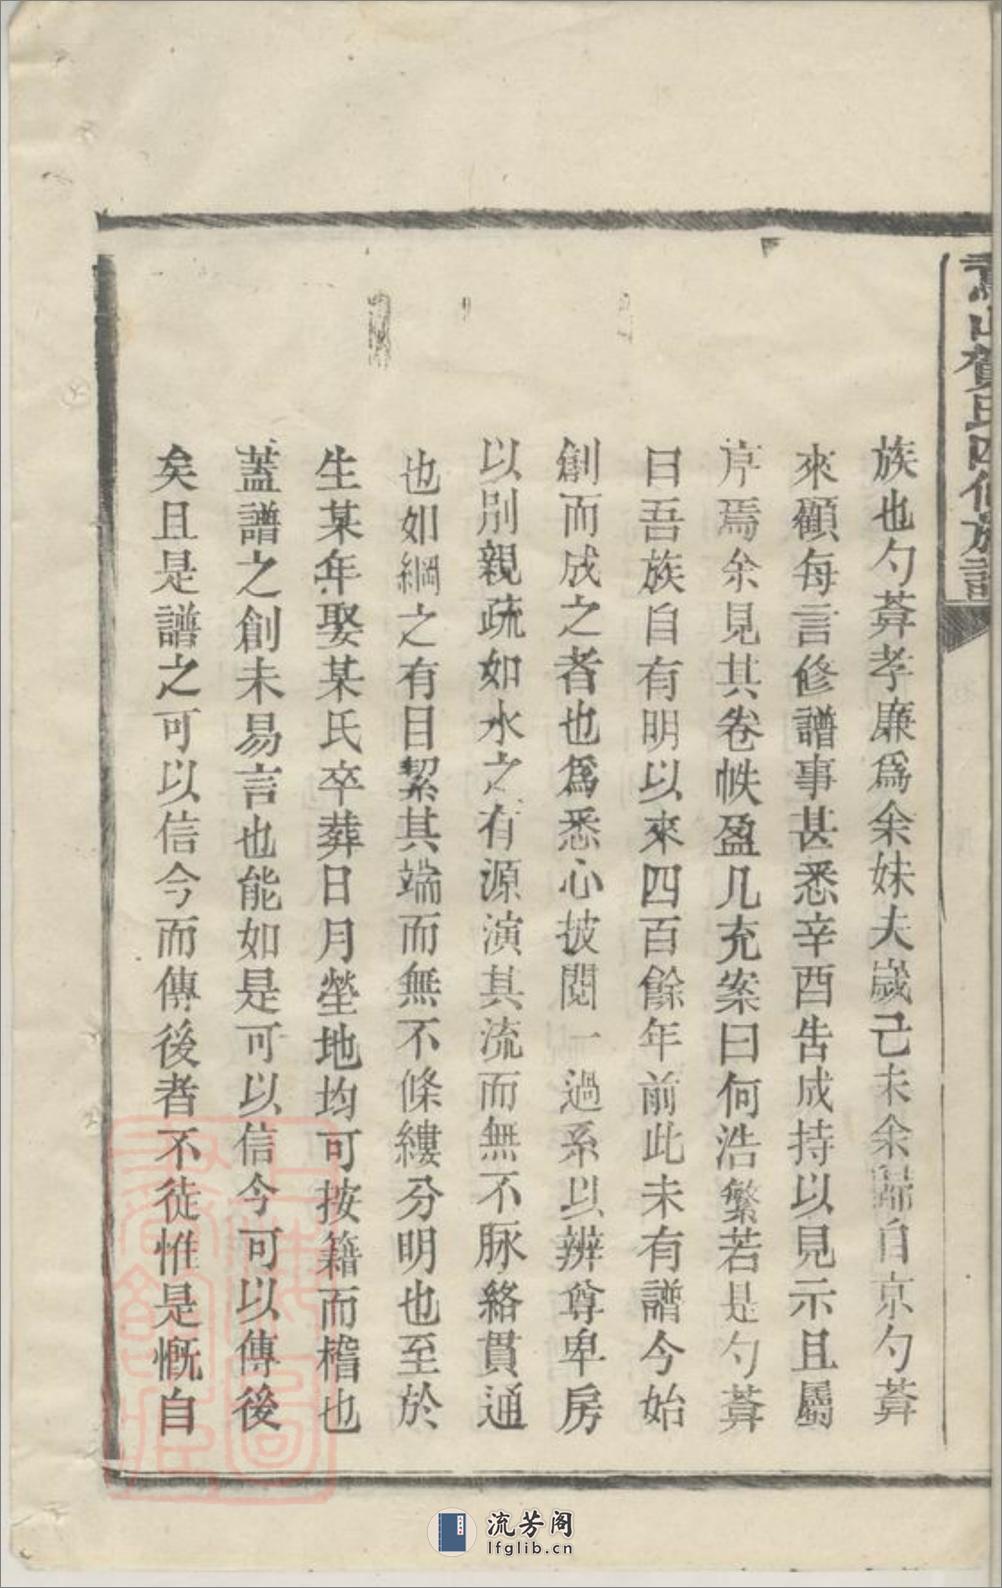 山賀氏四修族譜
族也勺葊孝廉爲余妹夫歲己未余歸自京勺葊
來顧每言修譜事甚悉辛酉告成持以見示且屬
序焉余見其卷帙盈几充案曰何浩繁若是勺葊
曰吾族自有明以來四百餘年前此未有譜今始
創而成之者也爲悉心披閱一過系以辨尊卑房
以別親疏如水之有源演其流而無不脉絡貫通
也如綱之有目絜其端而無不條縷分明也至於
生某年娶某氏卒葬日月塋地均可按籍而稽也
蓋譜之創未易言也能如是可以信今可以傳後
矣且是譜之可以信今而傳後者不徒惟是慨自
流芳阁
lfglib.cn